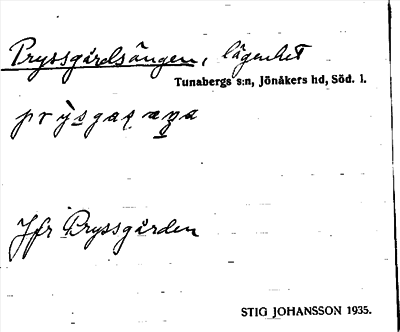 Pryssgårdsängen, lägenhet
Tunabergs s:n, Jönåkers hd, Söd. l.
Jfr Pryssgården
STIG JOHANSSON 1935.